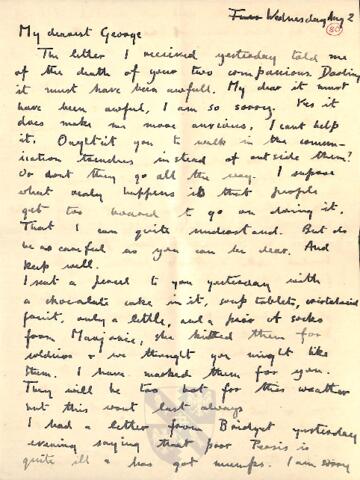 Wednesday Aug 2
80
My dearest George
The letter I received yesterday told me
of the death of your two companions. Darling
it must have been awfull. My dear it must
have been awful, I am so sorry. Yes it
does make me more anxious, I cant help
it. Ought'it you to walk in the commun-
ication trenches instead of outside them?
Or dont they go all the way. I supose
what realy happens is that people
get too board to go on doing it.
That I can quite understand. But do
be as careful as you can be dear. And
keep well.
I sent a parcel to you yesterday with
a chocolate cake in it, soup tablets,
fruit, only a little, and a pair of socks
from Marjorie, she knitted them for
soldiers & we thought you might like
them. I have marked them for you.
They will be too hot for this weather
but this wont last always
I had a letter from Bridget yesterday
evening saying that poor is
quite ill & has got mumps. I am sorry